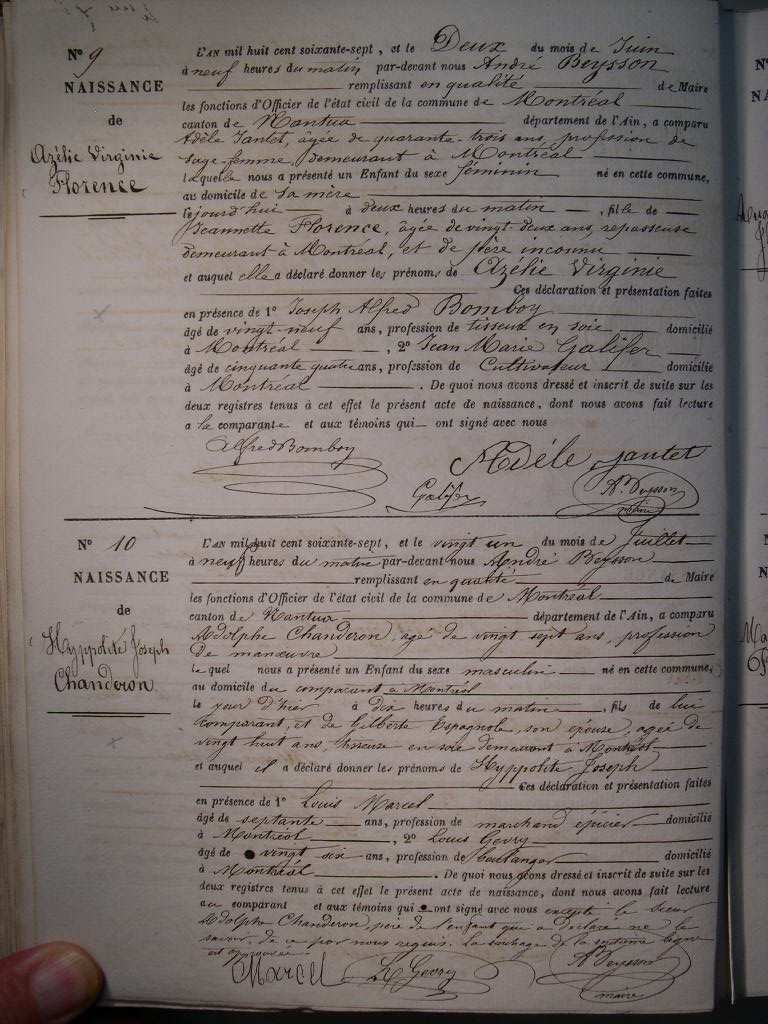 N° 9
NAISSANCE
de
Azélie Virginie
Florence
L'AN mil huit cent soixante-sept, et le Deux du mois de Juin
à neuf heures du matin par-devant nous André Beysson
remplissant en qualité de Maire
les fonctions d'Officier de l'état civil de la commune de Montréal
canton de Nantua département de l'Ain, a comparu
Adèle Jantet, âgée de quarante-trois ans, profession de
sage-femme, demeurant à Montréal
laquelle nous a présenté un Enfant du sexe féminin né en cette commune,
au domicile de sa mère
le jourd'hui à deux heures du matin, fille de
Jeannette Florence, agée de vingt-deux ans, repasseuse
demeurant à Montréal, et de père inconnu
et auquel elle a déclaré donner les prénoms de Azélie Virginie
Ces déclaration et présentation faites
en présence de 1° Joseph Alfred Bomboy
âgé de vingt-neuf ans, profession de tisseur en soie domicilié
à Montréal, 2° Jean Marie Galifer
âgé de cinquante quatre ans, profession de Cultivateur domicilié
à Montréal. De quoi nous avons dressé et inscrit de suite sur les
deux registres tenus à cet effet le présent acte de naissance, dont nous avons fait lecture
a la comparante et aux témoins qui ont signé avec nous
Alfred Bomboy
Adéle jantet
Galifer
An Beysson
maire
N° 10
NAISSANCE
de
Hyppolite Joseph
Chanderon
L'AN mil huit cent soixante-sept, et le vingt un du mois de Juillet
à neuf heures du matin par-devant nous André Beysson
remplissant en qualité de Maire
les fonctions d'Officier de l'état civil de la commune de Montréal
canton de Nantua département de l'Ain, a comparu
Adolphe Chanderon, agé de vingt sept ans, profession
de manœuvre
le quel nous a présenté un Enfant du sexe masculin né en cette commune,
au domicile du comparant a Montréal
le jour d'hier à dix heures du matin, fils de lui
comparant, et de Gilberte Espagnole, son épouse, agée de
vingt huit ans, tisseuse en soie demeurant à Montréal
et auquel il a déclaré donner les prénoms de Hyppolite Joseph
Ces déclaration et présentation faites
en présence de 1° Louis Marcel
âgé de septante ans, profession de marchand épicier domicilié
à Montréal, 2° Louis Gevry
âgé de vingt six ans, profession de boulanger domicilié
à Montréal. De quoi nous avons dressé et inscrit de suite sur les
deux registres tenus à cet effet le présent acte de naissance, dont nous avons fait lecture
au comparant et aux témoins qui ont signé avec nous excepté le sieur
Adolphe Chanderon, père de l'enfant que a déclaré ne le
savoir, de ce par nous requis. la surcharge de la septième ligne
est approuvée
Marcel
Ls Gevry
An Beysson
maire